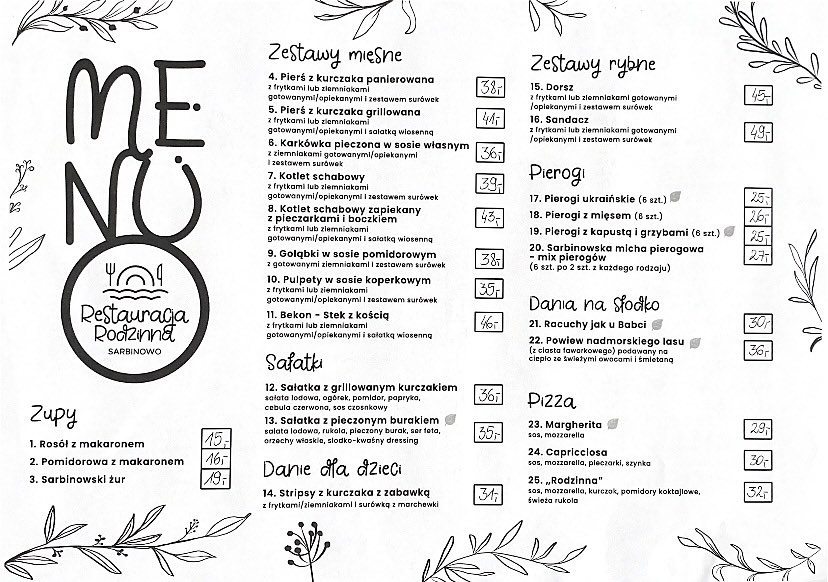 MENU
Restauracja
Rodzinna
SARBINOWO
Zupy
1. Rosół z makaronem 15,-
2. Pomidorowa z makaronem 16,-
3. Sarbinowski żur 19,-
Zestawy mięsne
4. Pierś z kurczaka panierowana 38,-
z frytkami lub ziemniakami
gotowanymi/opiekanymi i zestawem surówek
5. Pierś z kurczaka grillowana 41,-
z frytkami lub ziemniakami
gotowanymi/opiekanymi i sałatką wiosenną
6. Karkówka pieczona w sosie własnym 36,-
z ziemniakami gotowanymi/opiekanymi
i zestawem surówek
7. Kotlet schabowy 39,-
z frytkami lub ziemniakami
gotowanymi/opiekanymi i zestawem surówek
8. Kotlet schabowy zapiekany
z pieczarkami i boczkiem 43,-
z frytkami lub ziemniakami
gotowanymi/opiekanymi i sałatką wiosenną
9. Gołąbki w sosie pomidorowym 38,-
z gotowanymi ziemniakami i zestawem surówek
10. Pulpety w sosie koperkowym 35,-
z frytkami lub ziemniakami
gotowanymi/opiekanymi i zestawem surówek
11. Bekon - Stek z kością 46,-
z frytkami lub ziemniakami
gotowanymi/opiekanymi i sałatką wiosenną
Sałatki
12. Sałatka z grillowanym kurczakiem 36,-
sałata lodowa, ogórek, pomidor, papryka,
cebula czerwona, sos czosnkowy
13. Sałatka z pieczonym burakiem 35,-
sałata lodowa, rukola, pieczony burak, ser feta,
orzechy włoskie, słodko-kwaśny dressing
Danie dla dzieci
14. Stripsy z kurczaka z zabawką 31,-
z frytkami/ziemniakami i surówką z marchewki
Zestawy rybne
15. Dorsz 45,-
z frytkami lub ziemniakami gotowanymi
/opiekanymi i zestawem surówek
16. Sandacz 49,-
z frytkami lub ziemniakami gotowanymi
/opiekanymi i zestawem surówek
Pierogi
17. Pierogi ukraińskie (6 szt.) 25,-
18. Pierogi z mięsem (6 szt.) 26,-
19. Pierogi z kapustą i grzybami (6 szt.) 25,-
20. Sarbinowska micha pierogowa 27,-
- mix pierogów
(6 szt. po 2 szt. z każdego rodzaju)
Dania na słodko
21. Racuchy jak u Babci 30,-
22. Powiew nadmorskiego lasu 36,-
(z ciasta faworkowego) podawany na
ciepło ze świeżymi owocami i śmietaną
Pizza
23. Margherita 29,-
sos, mozzarella
24. Capricciosa 30,-
sos, mozzarella, pieczarki, szynka
25. „Rodzinna” 32,-
sos, mozzarella, kurczak, pomidory koktajlowe,
świeża rukola